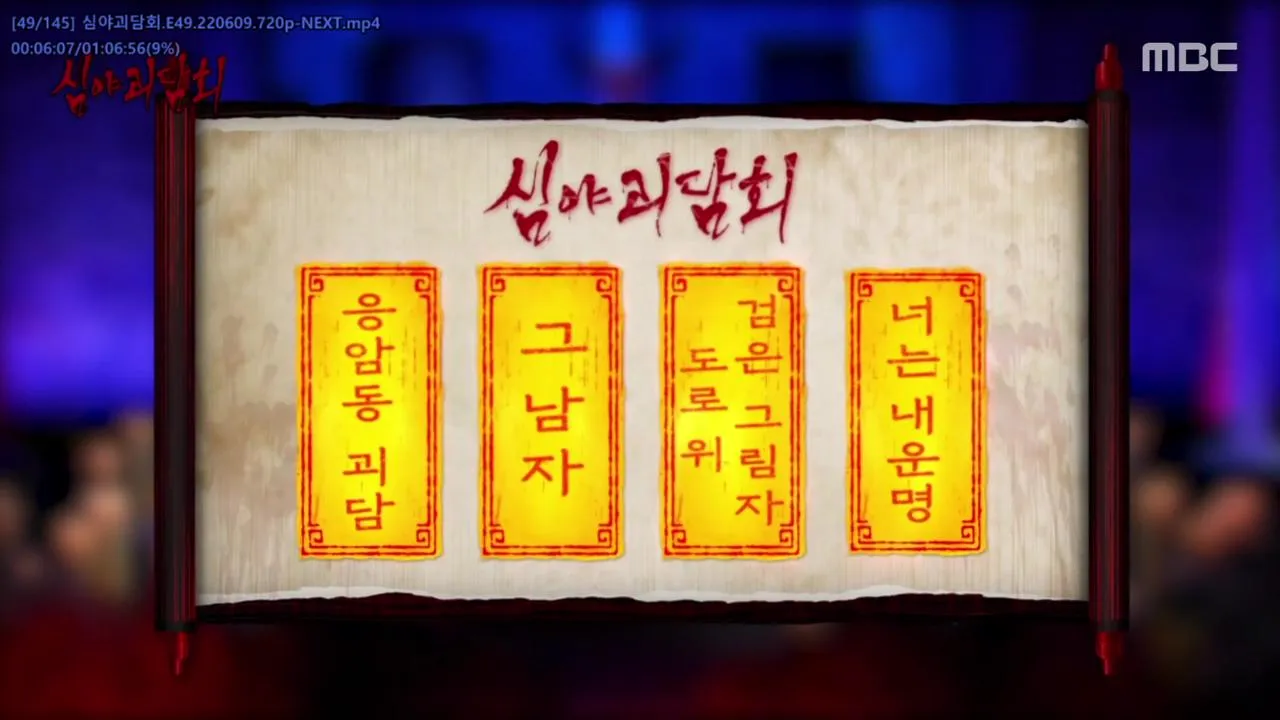 [49/145] 심야괴담회.E49.220609.720p-NEXT.mp4
00:06:07/01:06:56(9%)
심야괴담회
MBC
심야괴담회
응암동 괴담
그 남자
도로 위
검은 그림자
너는 내 운명